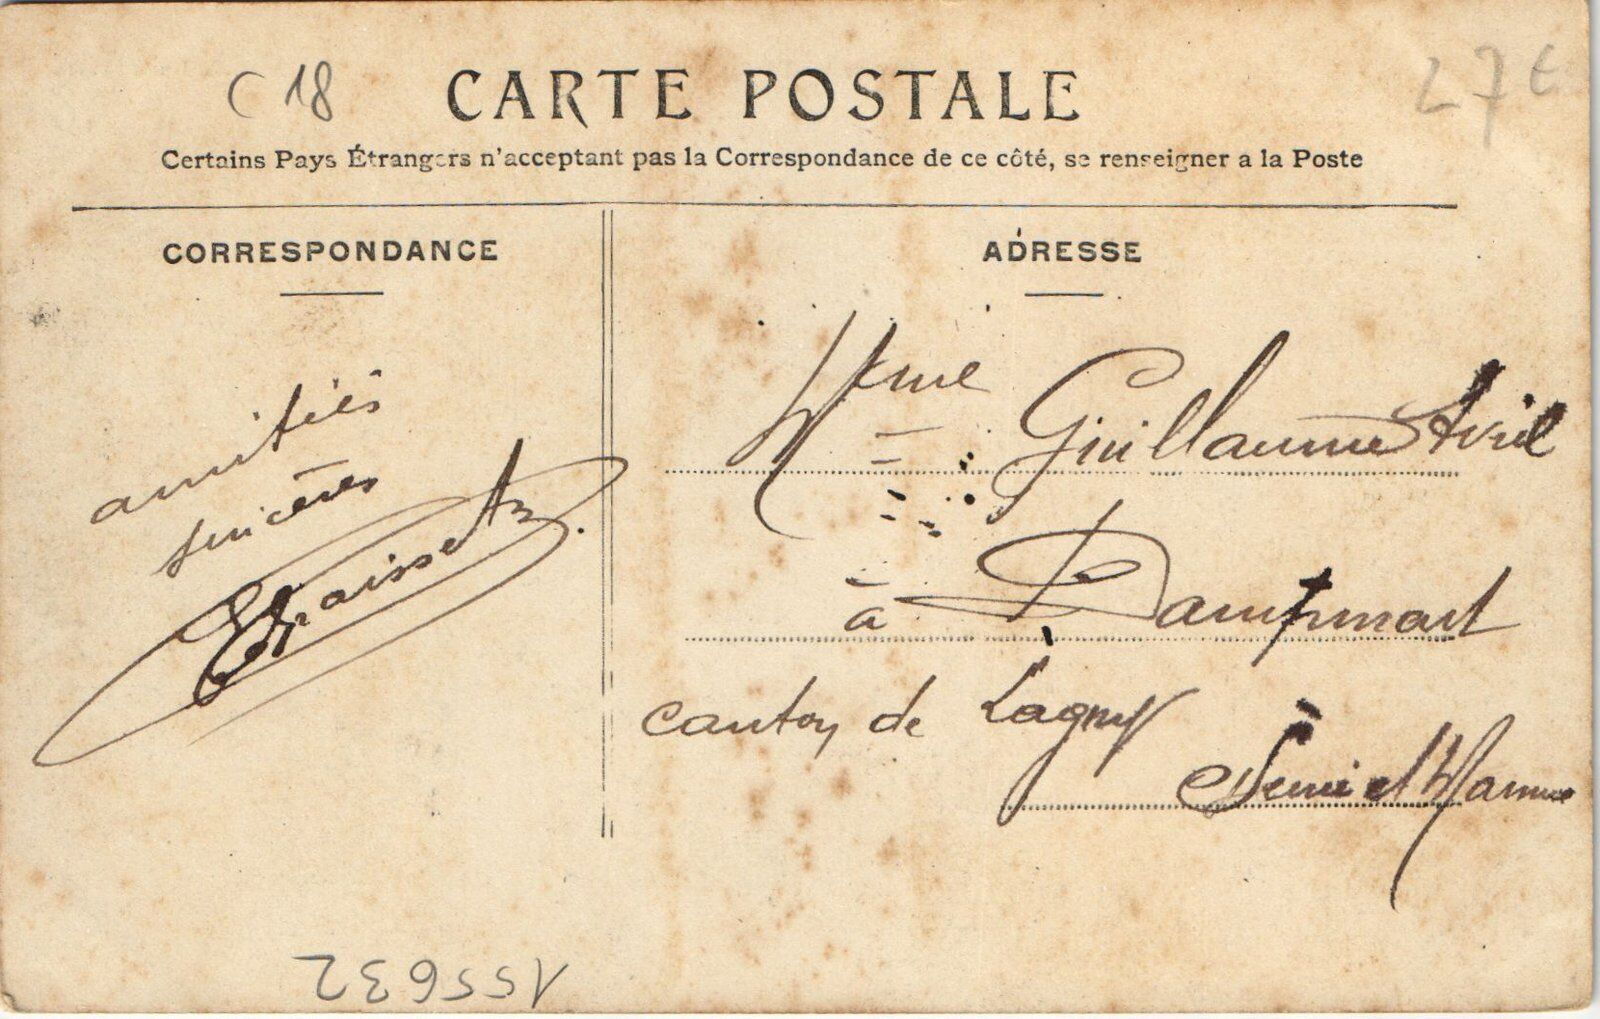 C 18
CARTE POSTALE
27 €
Certains Pays Étrangers n'acceptant pas la Correspondance de ce côté, se renseigner a la Poste
CORRESPONDANCE
amitiés
sincères
ADRESSE
Mme Guillaume Avril
à Dampmart
canton de Lagny
Seine et Marne
155632